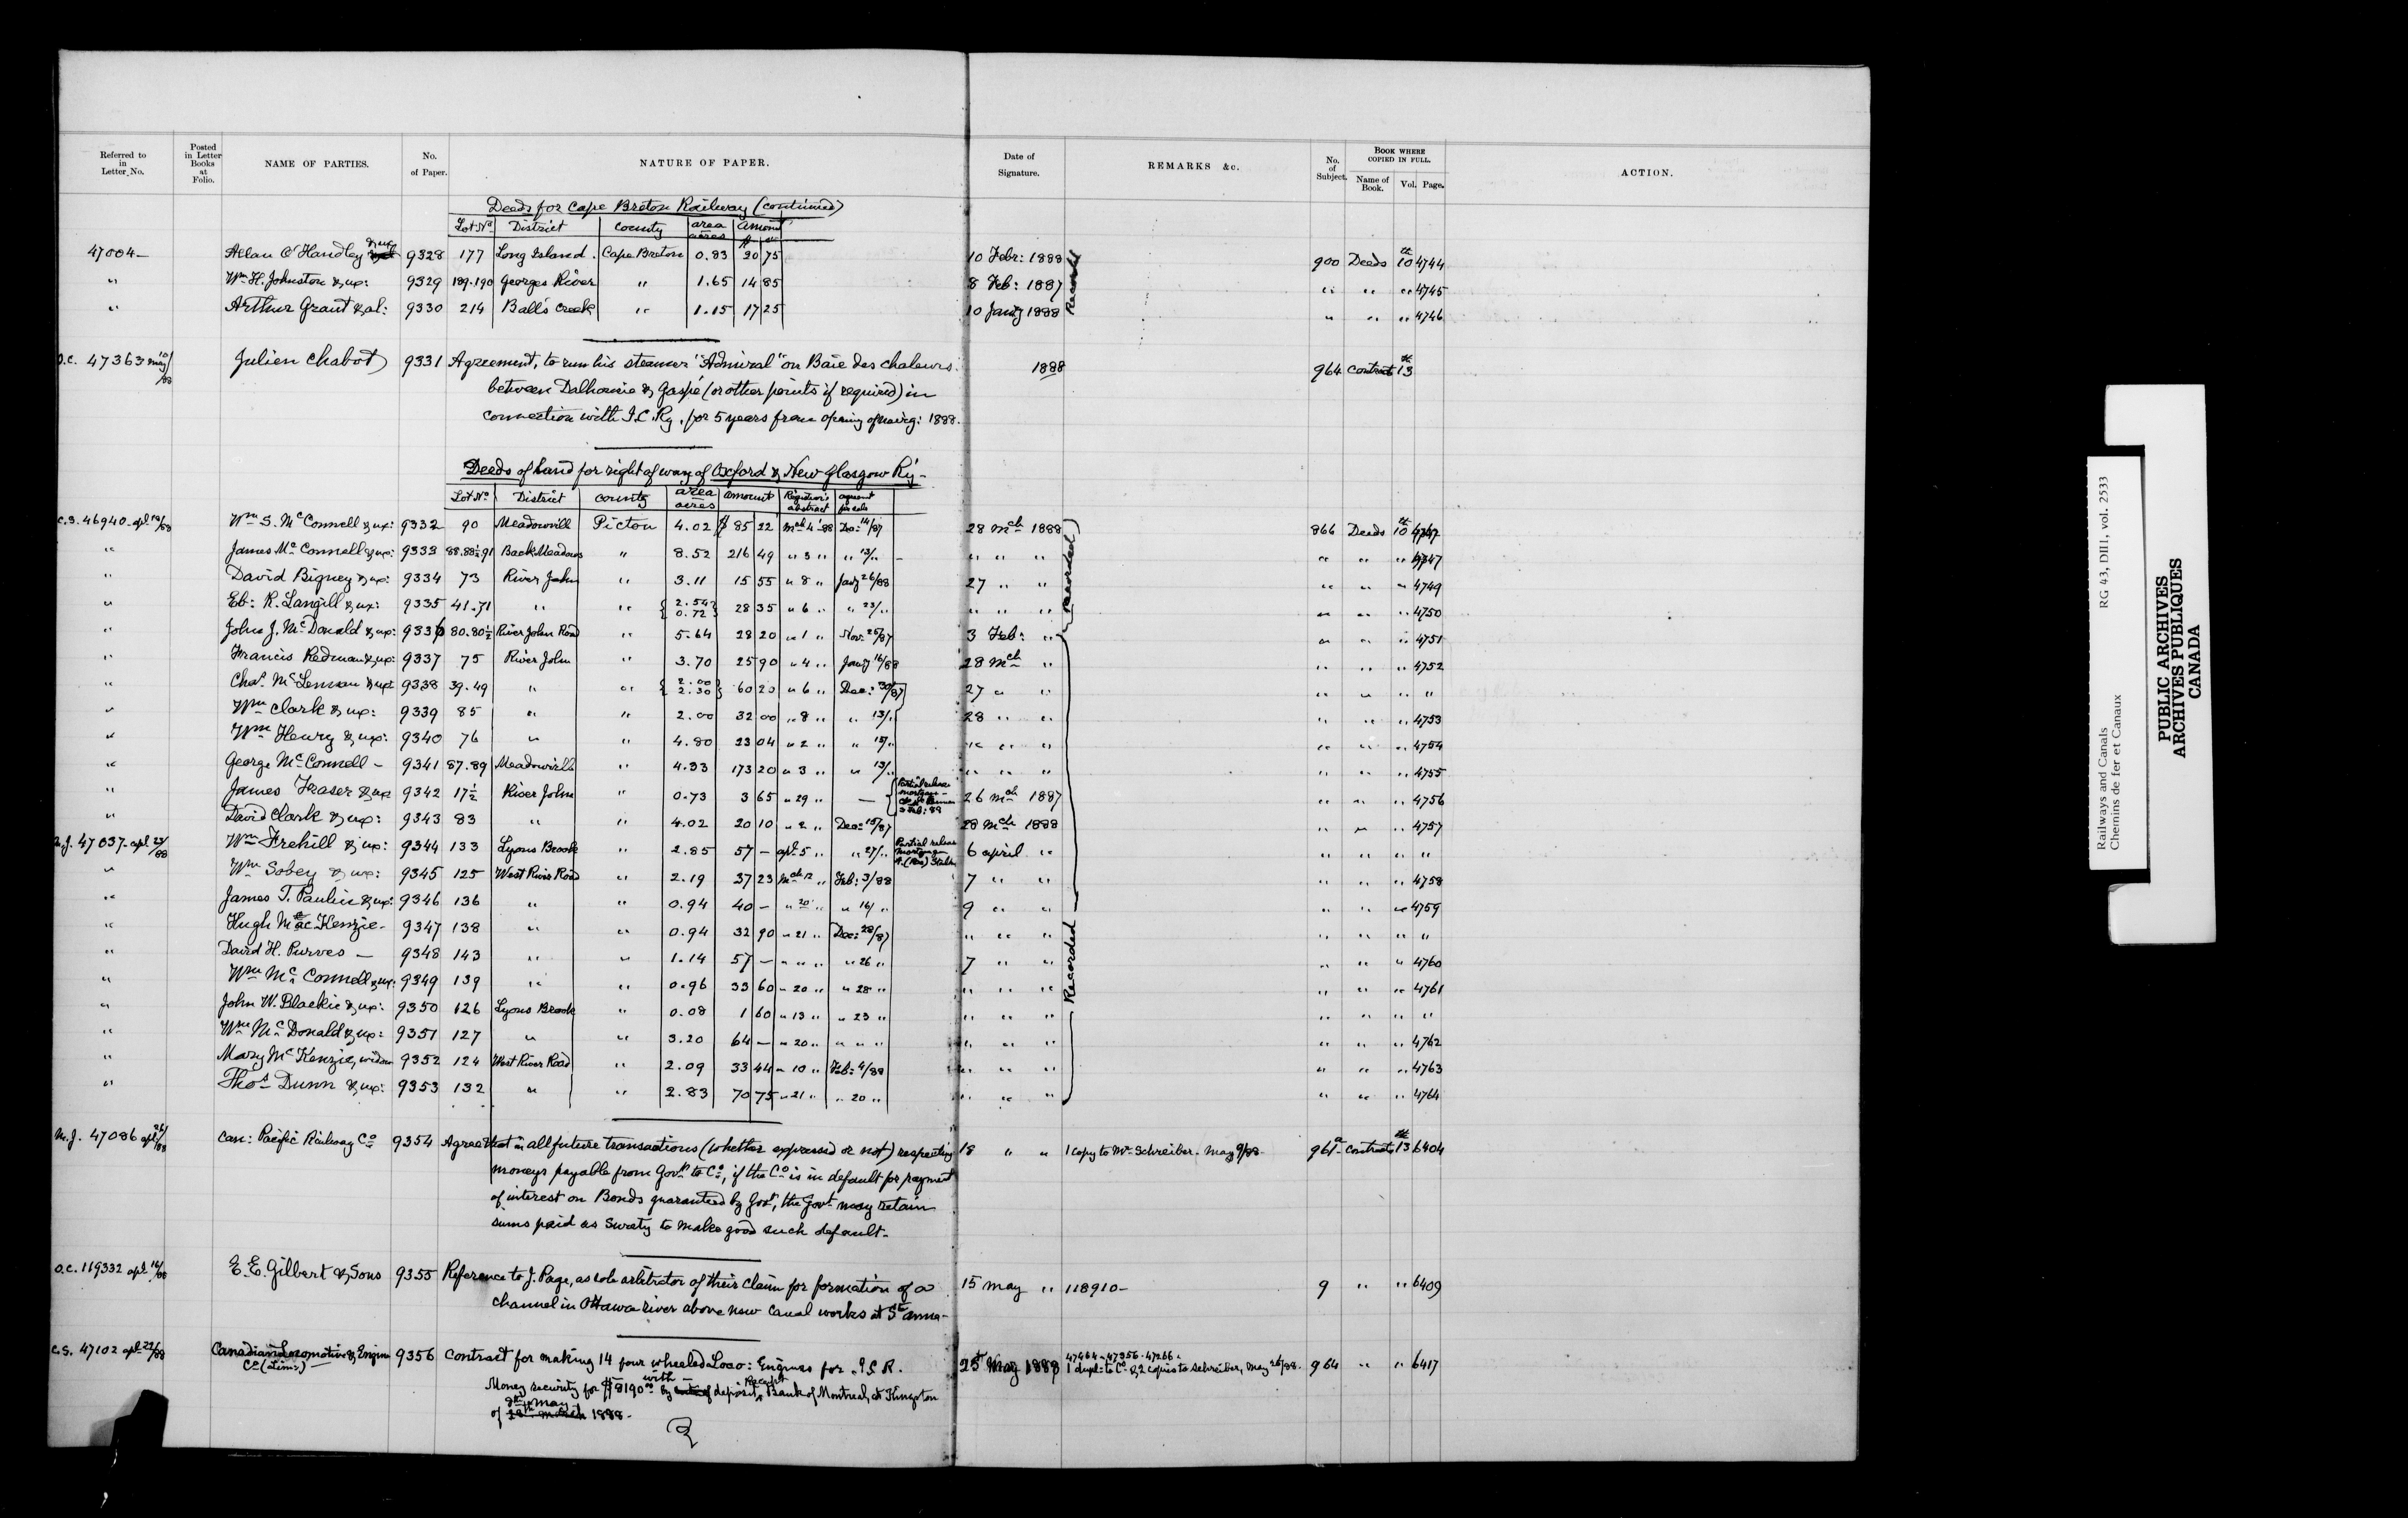 Referred to in Letter No. | Posted in Letter Books at Folio. | NAME OF PARTIES. | No. of Paper. | NATURE OF PAPER. | Date of Signature. | REMARKS &c. | No. of Subject. | BOOK WHERE COPIED IN FULL. Name of Book. Vol. Page. | ACTION.
Deeds for Cape Breton Railway (continued)
Lot No | District | County | area acres | Amount $ cts
47004 — Allan O'Handley & ux 9328 177 Long Island. Cape Breton 0.83 20 75 10 Febr: 1888 900 Deeds 10th 4744
" Wm H. Johnston & ux: 9329 189.190 Georges River " 1.65 14 85 8 Feb: 1887 " " " 4745
" Arthur Grant & al: 9330 214 Ball's Creek " 1.15 17 25 10 Jany 1888 " " " 4746
Recorded
O.C. 47363 may 10/88 Julien Chabot 9331 Agreement, to run his steamer "Admiral" on Baie des Chaleurs. 1888 964 Contract 13th
between Dalhousie & Gaspé (or other points if required) in
connection with I.C. Ry. for 5 years from opening of navig: 1888.
Deeds of Land for right of way of Oxford & New Glasgow Ry —
Lot No | District | County | area acres | amount | Registrar's abstract | agreemt for sale
C.S. 46940 - apl 19/88 Wm S. McConnell & ux: 9332 90 Meadowvill Pictou 4.02 $ 85 22 Mch 4 '88 Dec: 14/87 28 Mch 1888 866 Deeds 10th 4747
" James McConnell & ux: 9333 88.88½.91 Back Meadows " 8.52 216 49 " 3 " " 13/" " " " " " " 4747
" David Bigney & ux: 9334 73 River John " 3.11 15 55 " 8 " Jany 26/88 27 " " " " " 4749
" Eb: R. Langill & ux: 9335 41.71 " " { 2.54 0.72 } 28 35 " 6 " " 23/" " " " " " " 4750
" John J. McDonald & ux: 9336 80.80½ River John Road " 5.64 28 20 " 1 " Nov: 25/87 3 Feb: " " " " 4751
" Francis Redman & ux: 9337 75 River John " 3.70 25 90 " 4 " Jany 16/88 28 Mch " " " " 4752
" Chas. McLennan & ux: 9338 39.49 " " { 2.00 2.30 } 60 20 " 6 " Dec: 30/87 27 " " " " " "
" Wm Clark & ux: 9339 85 " " 2.00 32 00 " 8 " " 13/" 28 " " " " " 4753
" Wm Henry & ux: 9340 76 " " 4.80 23 04 " 2 " " 15/" " " " " " " 4754
" George McConnell — 9341 87.89 Meadowville " 4.33 173 20 " 3 " " 13/" " " " " " " 4755
" James Fraser & ux 9342 17½ River John " 0.73 3 65 " 29 " — { Partial release mortgage 26 Mch 1887 " " " 4756
" David Clark & ux: 9343 83 " " 4.02 20 10 " 2 " Dec: 15/87 28 Mch 1888 " " " 4757
47037 - apl 23/88 Wm Frehill & ux: 9344 133 Lyons Brook " 2.85 57 — apl. 5 " " 27/" Partial release mortgage 6 april " " " " "
" Wm Sobey & ux: 9345 125 West River Road " 2.19 37 23 Mch 12 " Feb: 3/88 7 " " " " " 4758
" James T. Paulin & ux: 9346 136 " " 0.94 40 — " 20 " " 16/ " 9 " " " " " 4759
" Hugh MacKenzie — 9347 138 " " 0.94 32 90 " 21 " Dec: 28/87 " " " " " " "
" David H. Purves — 9348 143 " " 1.14 57 — " " " " 26 " 7 " " " " " 4760
" Wm McConnell & ux: 9349 139 " " 0.96 33 60 " 20 " " 28 " " " " " " " 4761
" John W. Blackie & ux: 9350 126 Lyons Brook " 0.08 1 60 " 13 " " 23 " " " " " " " "
" Wm McDonald & ux: 9351 127 " " 3.20 64 — " 20 " " " " " " " " " " 4762
" Mary McKenzie, widow 9352 124 West River Road " 2.09 33 44 " 10 " Feb: 4/88 " " " " " " 4763
" Thos Dunn & ux: 9353 132 " " 2.83 70 75 " 21 " " 20 " " " " " " " 4764
Recorded
Recorded
M.J. 47086 apl 26/88 Can: Pacific Railway Co 9354 Agreemt that in all future transactions (whether expressed or not) respecting 18 " " 1 copy to Mr Schreiber. May 9/88 961a Contracts 13th 6404
moneys payable from Govt to Co, if the Co is in default for payment
of interest on Bonds guaranteed by Govt, the Govt may retain
sums paid as Surety to make good such default.
O.C. 119332 apl 16/88 E.E. Gilbert & Sons 9355 Reference to J. Page, as sole arbitrator of their claim for formation of a 15 May " 118910 — 9 " " 6409
channel in Ottawa River above new canal works at Ste Anne —
C.S. 47102 apl 27/88 Canadian Locomotive & Engine Co (Lim:) 9356 Contract for making 14 four wheeled Loco: Engines for I.C.R. 25th May 1888 47464 - 47356 - 47266 - 1 dupl: to Co & 2 copies to Schreiber, May 26/88. 964 " " 6417
Money security for $8190.00 with by deposit Receipt Bank of Montreal, at Kingston
of 8th May 28th March 1888 —
Railways and Canals
Chemins de fer et Canaux
RG 43, DIII, vol. 2533
PUBLIC ARCHIVES
ARCHIVES PUBLIQUES
CANADA